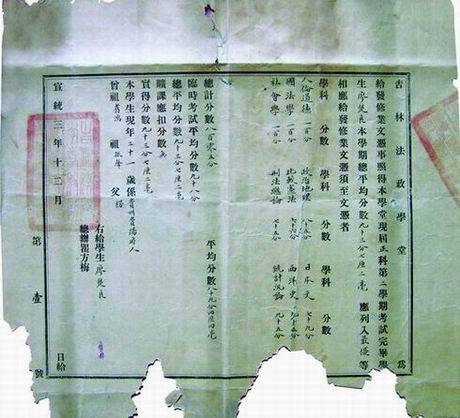 吉林法政學堂 為
給發修業文憑事照得本學堂現屆正科第二學期考試完畢學
生廖楚良本學期總平均分數九十三分七厘二毫 應列入最優等
相應給發修業文憑須至文憑者
學科 分數 學科 分數 學科 分數
人倫道德 一百分 政治地理 八十五分 日本文 七十九分
國法學 一百分 比較憲法 七十六分 西洋史 九十五分
社會學 一百分 刑法總論 七十五分 統計汎論 九十五分
總計分數 八百零五分 平均分數八十九分四厘四毫
臨時考試平均分數九十八分
總平均分數九十三分七厘二毫
曠課應扣分數無
實得分數九十三分七厘二毫
本學生現年二十一歲係貴州貴陽府人
曾祖 祖 父
右給學生廖楚良
總辦瞿方梅
宣統三年十二月 日給
第壹號